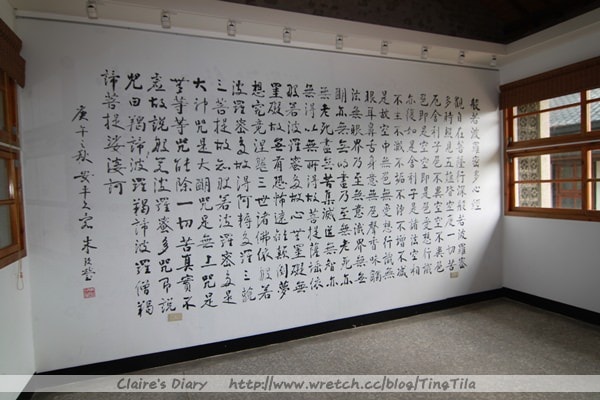 般若波羅密多心經
觀自在菩薩行深般若波羅密
多時照見五蘊皆空度一切苦
厄舍利子色不異空空不異色
色即是空空即是色受想行識
亦復如是舍利子是諸法空相
不生不滅不垢不淨不增不減
是故空中無色無受想行識無
眼耳鼻舌身意無色聲香味觸
法無眼界乃至無意識界無無
明亦無無明盡乃至無老死亦
無老死盡無苦集滅道無智亦
無得以無所得故菩提薩埵依
般若波羅密多故心無罣礙無
罣礙故無有恐怖遠離顛倒夢
想究竟涅槃三世諸佛依般若
波羅密多故得阿耨多羅三藐
三菩提故知般若波羅密多是
大神咒是大明咒是無上咒是
無等等咒能除一切苦真實不
虛故說般若波羅密多咒即說
咒曰羯諦波羅羯諦波羅僧羯
諦菩提娑婆訶
庚午之秋 朱玖瑩
Claire's Diary http://www.wretch.cc/blog/TingTila